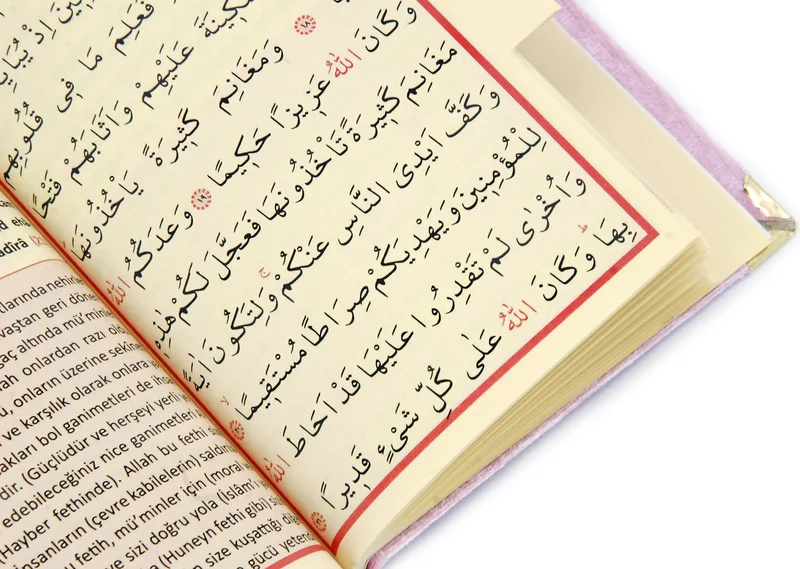 اِذْ يُبَايِ
فَعَلِمَ مَا فِى قُلُوبِهِمْ
عَلَيْهِمْ وَاَثَابَهُمْ فَتْحًا
﴿١٨﴾ وَمَغَانِمَ كَثِيرَةً يَاْخُذُونَهَا
وَكَانَ اللّٰهُ عَزِيزًا حَكِيمًا ﴿١٩﴾ وَعَدَكُمُ اللّٰهُ
مَغَانِمَ كَثِيرَةً تَاْخُذُونَهَا فَعَجَّلَ لَكُمْ هٰذِهِ
وَكَفَّ اَيْدِىَ النَّاسِ عَنْكُمْ وَلِتَكُونَ اٰيَةً
لِلْمُؤْمِنِينَ وَيَهْدِيَكُمْ صِرَاطًا مُسْتَقِيمًا ﴿٢٠﴾
وَاُخْرٰى لَمْ تَقْدِرُوا عَلَيْهَا قَدْ اَحَاطَ اللّٰهُ
بِهَا وَكَانَ اللّٰهُ عَلٰى كُلِّ شَىْءٍ قَدِيرًا ﴿٢١﴾
larında nehir
vaştan geri döne
aç altında mü'min
onlardan razı ol
onların üzerine sekin
ve karşılık olarak onlara
akları bol ganimetleri de ihs
dir. (Güçlüdür ve herşeyi yerli
edebileceğiniz nice ganimetleri
Hayber fethinde). Allah bu fethi
insanların (çevre kabilelerin) saldırı
fetih, mü'minler için (moral
ve sizi doğru yola (İslâm'ı
(Huneyn fethi gibi)
size kuşattığı
gücü yeten